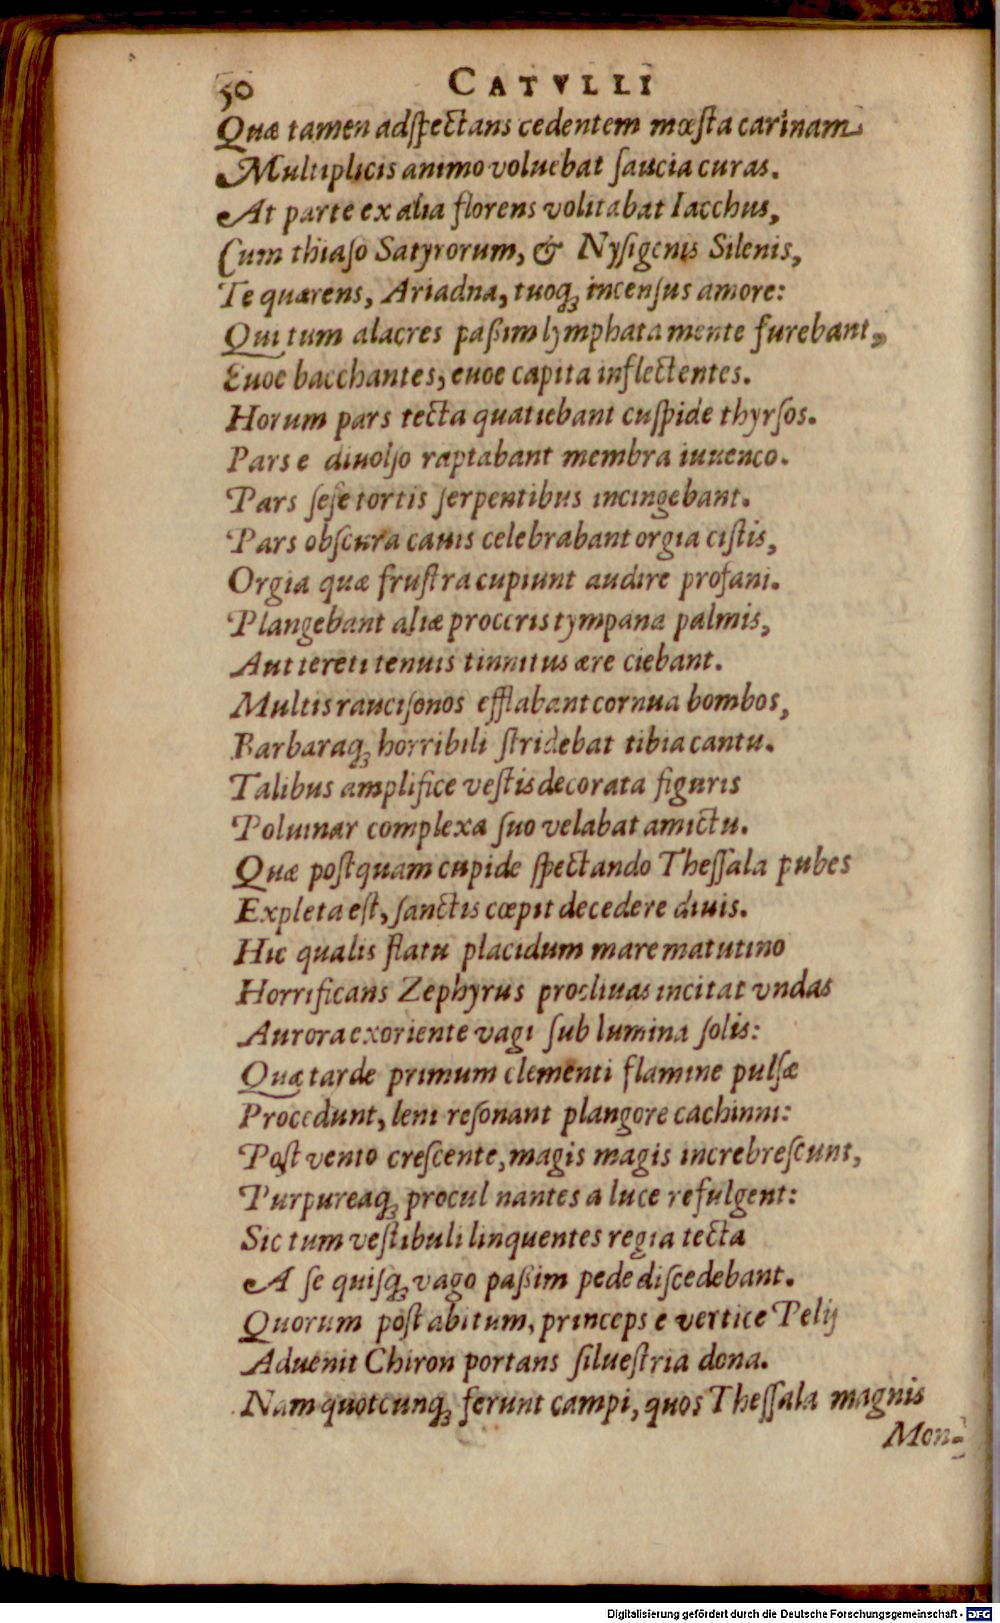 50 CATVLLI
Quæ tamen adſpectans cedentem mœſta carinam
Multiplicis animo voluebat ſaucia curas.
At parte ex alia florens volitabat Iacchus,
Cum thiaſo Satyrorum, & Nyſigenis Silenis,
Te quærens, Ariadna, tuoq; incenſus amore:
Qui tum alacres paßim lymphata mente furebant,
Euoe bacchantes, euoe capita inflectentes.
Horum pars tecta quatiebant cuſpide thyrſos.
Pars e diuolſo raptabant membra iuuenco.
Pars ſeſe tortis ſerpentibus incingebant.
Pars obſcura cauis celebrabant orgia ciſtis,
Orgia quæ fruſtra cupiunt audire profani.
Plangebant aliæ proceris tympana palmis,
Aut tereti tenuis tinnitus ære ciebant.
Multis rauciſonos efflabant cornua bombos,
Barbaraq; horribili ſtridebat tibia cantu.
Talibus amplifice veſtis decorata figuris
Poluinar complexa ſuo velabat amictu.
Quæ poſtquam cupide ſpectando Theſſala pubes
Expleta eſt, ſanctis cœpit decedere diuis.
Hic qualis flatu placidum mare matutino
Horrificans Zephyrus procliuas incitat vndas
Aurora exoriente vagi ſub lumina ſolis:
Quæ tarde primum clementi flamine pulſæ
Procedunt, leni reſonant plangore cachinni:
Poſt vento creſcente, magis magis increbreſcunt,
Purpureaq; procul nantes a luce refulgent:
Sic tum veſtibuli linquentes regia tecta
A ſe quiſq; vago paßim pede diſcedebant.
Quorum poſt abitum, princeps e vertice Pelij
Aduenit Chiron portans ſilueſtria dona.
Nam quotcunq; ferunt campi, quos Theſſala magnis
Mon-
Digitalisierung gefördert durch die Deutsche Forschungsgemeinschaft - DFG